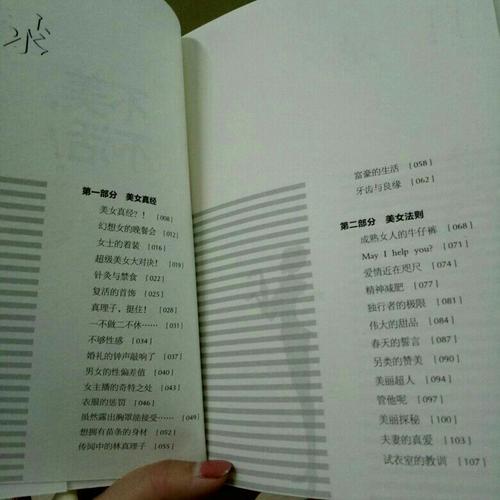 第一部分 美女真经
美女真经?! [008]
幻想女的晚餐会 [012]
女士的着装 [016]
超级美女大对决! [019]
针灸与禁食 [022]
复活的首饰 [025]
真理子，挺住! [028]
一不做二不休…… [031]
不够性感 [034]
婚礼的钟声敲响了 [037]
男女的性偏差值 [040]
女主播的奇特之处 [043]
衣服的惩罚 [046]
虽然露出胸罩能接受…… [049]
想拥有苗条的身材 [052]
传闻中的林真理子 [055]
富豪的生活 [058]
牙齿与良缘 [062]
第二部分 美女法则
成熟女人的牛仔裤 [068]
May I help you? [071]
爱情近在咫尺 [074]
精神减肥 [077]
独行者的极限 [081]
伟大的甜品 [084]
春天的誓言 [087]
另类的赞美 [090]
美丽超人 [094]
管他呢 [097]
美丽探秘 [100]
夫妻的真爱 [103]
试衣室的教训 [107]